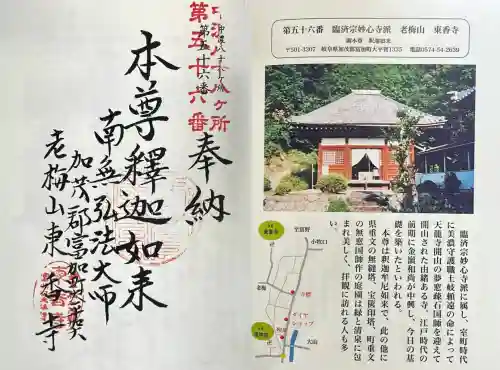 第五十六番
奉納
本尊釋迦如来
南無弘法大師
加茂郡富加町大平賀
老梅山東香寺
第五十六番 臨済宗妙心寺派 老梅山 東香寺
御本尊 釈迦如来
〒501-3307 岐阜県加茂郡富加町大平賀1335 電話0574-54-2639
臨済宗妙心寺派に属し、室町時代
に美濃守護職土岐頼遠の命によって
天龍寺開山の夢窓疎石国師を迎えて
開山された由緒ある寺、江戸時代の
前期に金嶺和尚が中興し、今日の基
礎を築いたといわれる。
本尊は釈迦牟尼如来で、此の他に
県重文の無縫塔、宝篋印塔、町重文
の無窓国師作の庭園は緑と清泉に包
まれ美しく、拝観に訪れる人も多
い。
至富野
小牧口
寺標
ダイヤ
ショップ